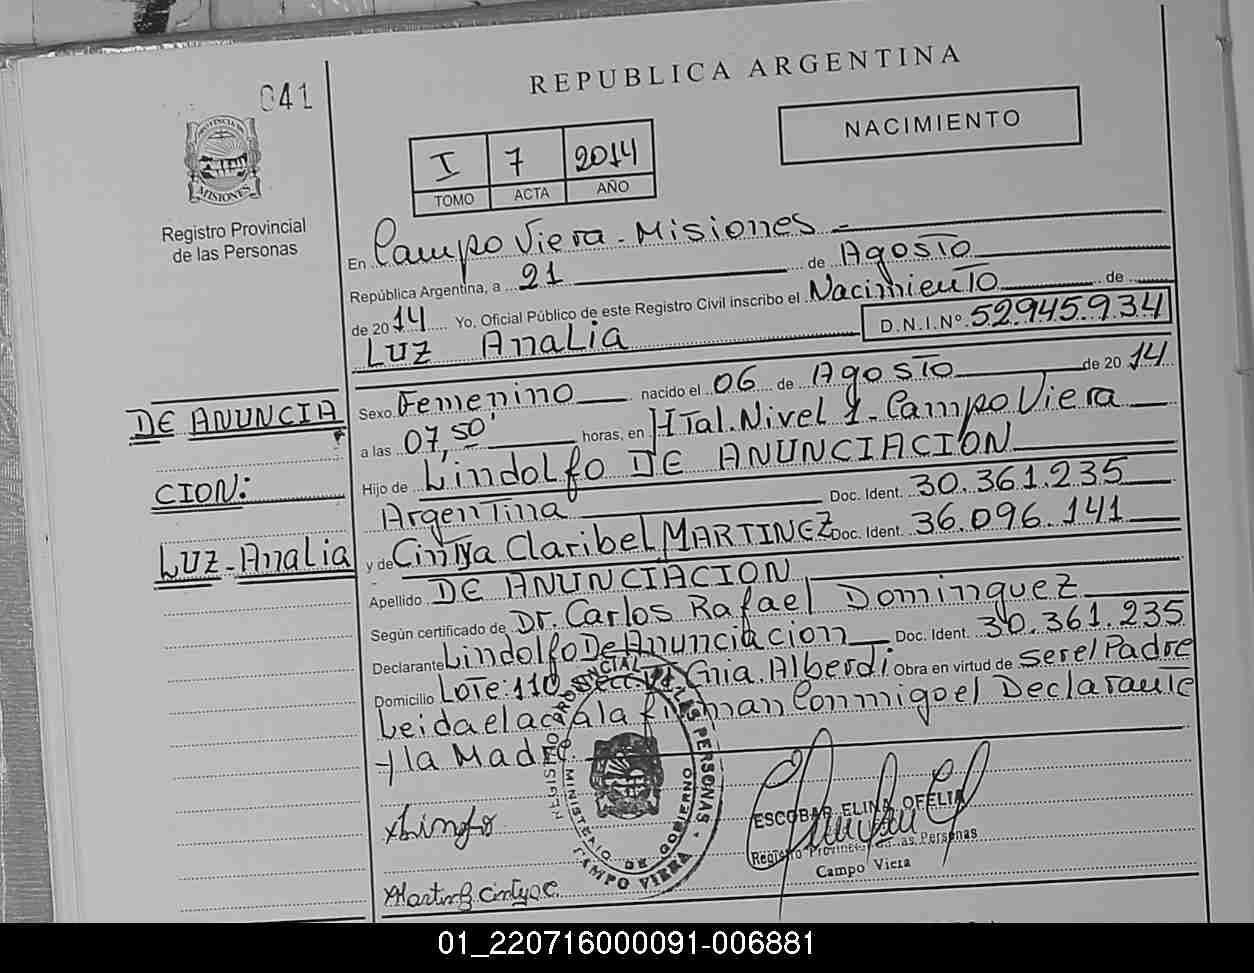 041
REPUBLICA ARGENTINA
NACIMIENTO
I 7 2014
TOMO ACTA AÑO
PROVINCIA DE
MISIONES
Registro Provincial
de las Personas
En Campo Viera - Misiones
República Argentina, a 21 de Agosto de
de 2014 Yo. Oficial Público de este Registro Civil inscribo el Nacimiento
Luz Analia D.N.I.Nº 52.945.934
DE ANUNCIA
CION:
Luz - Analia
Sexo Femenino nacido el 06 de Agosto de 2014
a las 07,50' horas, en HTal. Nivel 1 - Campo Viera
Hijo de Lindolfo DE ANUNCIACION
Argentina Doc. Ident. 30.361.235
y de Cintya Claribel MARTINEZ Doc. Ident. 36.096.141
Apellido DE ANUNCIACION
Según certificado de Dr. Carlos Rafael Dominguez
Declarante Lindolfo De Anunciacion Doc. Ident. 30.361.235
Domicilio Lote: 110 Secc VI Gnia. Alberdi Obra en virtud de ser el Padre
Leida el acta la firman Conmigo el Declarante
y la Madre
REGISTRO PROVINCIAL DE LAS PERSONAS
MINISTERIO DE GOBIERNO
CAMPO VIERA
ESCOBAR ELINA OFELIA
Registro Provincial de las Personas
Campo Viera
Martinez Cintya C.
01_220716000091-006881